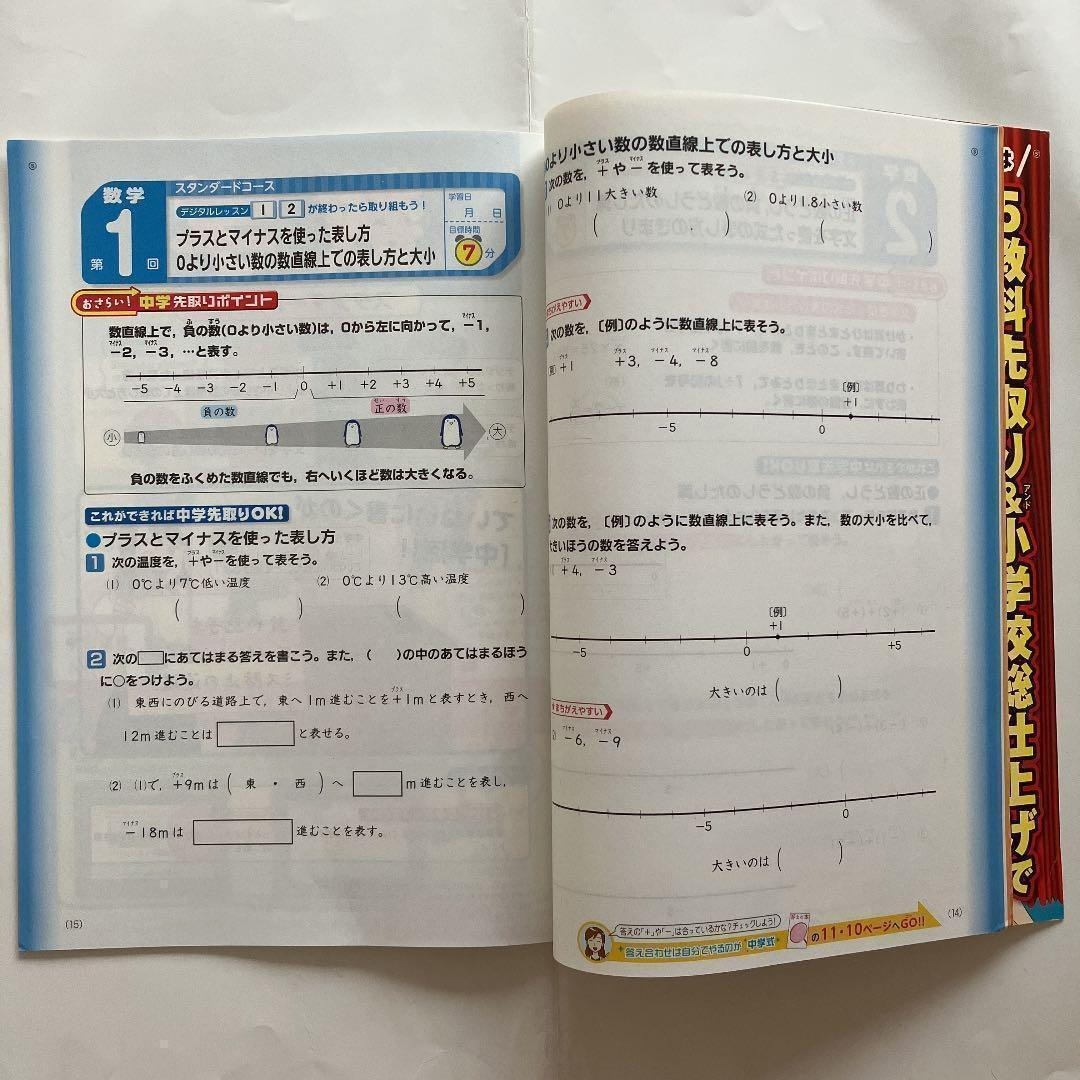 数学
第1回
スタンダードコース
デジタルレッスン 1 2 が終わったら取り組もう!
プラスとマイナスを使った表し方
0より小さい数の数直線上での表し方と大小
学習日
月 日
目標時間
7分
おさらい! 中学先取りポイント
数直線上で,負の数(0より小さい数)は,0から左に向かって,−1,
−2,−3,…と表す。
−5 −4 −3 −2 −1 0 +1 +2 +3 +4 +5
負の数 正の数
小 大
負の数をふくめた数直線でも,右へいくほど数は大きくなる。
これができれば中学先取りOK!
●プラスとマイナスを使った表し方
1 次の温度を,+や−を使って表そう。
(1) 0℃より7℃低い温度 (2) 0℃より13℃高い温度
( ) ( )
2 次の□にあてはまる答えを書こう。また,( )の中のあてはまるほう
に○をつけよう。
(1) 東西にのびる道路上で,東へ1m進むことを+1mと表すとき,西へ
12m進むことは □ と表せる。
(2) (1)で,+9mは ( 東 ・ 西 ) へ □ m進むことを表し,
−18mは □ 進むことを表す。
(15)
0より小さい数の数直線上での表し方と大小
次の数を,+や−を使って表そう。
0より11大きい数 (2) 0より1.8小さい数
( ) ( )
ちがえやすい
次の数を,〔例〕のように数直線上に表そう。
+1 +3,−4,−8
〔例〕
+1
−5 0
次の数を,〔例〕のように数直線上に表そう。また,数の大小を比べて,
大きいほうの数を答えよう。
+4,−3
〔例〕
+1
−5 0 +5
大きいのは ( )
まちがえやすい
−6,−9
−5 0
大きいのは ( )
答えの「+」や「−」は合っているかな?チェックしよう!
答え合わせは自分でやるのが 中学式
の11・10ページへGO!!
(14)
5教科先取り&小学校総仕上げで
アンド